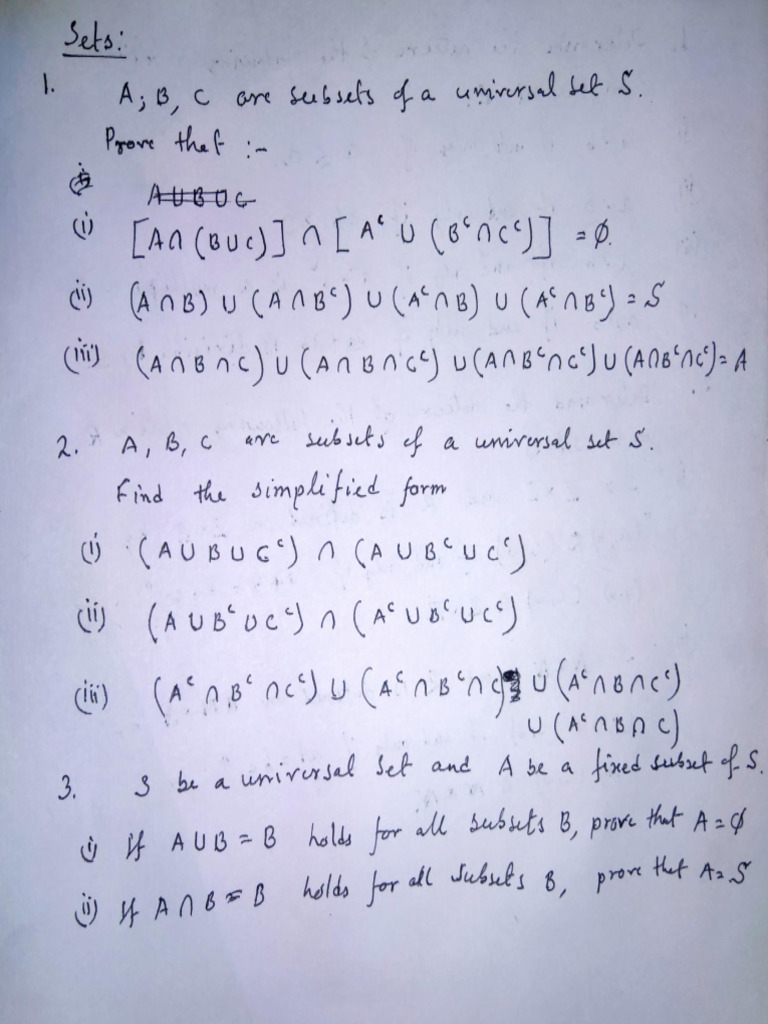 Sets:
1. A, B, C are subsets of a universal set S.
Prove that :-
A∪B∪C
(i) [A∩(B∪C)] ∩ [Aᶜ ∪ (Bᶜ∩Cᶜ)] = ∅.
(ii) (A∩B) ∪ (A∩Bᶜ) ∪ (Aᶜ∩B) ∪ (Aᶜ∩Bᶜ) = S
(iii) (A∩B∩C) ∪ (A∩B∩Cᶜ) ∪ (A∩Bᶜ∩Cᶜ) ∪ (A∩Bᶜ∩Cᶜ) = A
2. A, B, C are subsets of a universal set S.
Find the simplified form
(i) (A∪B∪Cᶜ) ∩ (A∪Bᶜ∪Cᶜ)
(ii) (A∪Bᶜ∪Cᶜ) ∩ (Aᶜ∪Bᶜ∪Cᶜ)
(iii) (Aᶜ∩Bᶜ∩Cᶜ) ∪ (Aᶜ∩Bᶜ∩C) ∪ (Aᶜ∩B∩Cᶜ)
∪ (Aᶜ∩B∩C)
3. S be a universal set and A be a fixed subset of S.
(i) If A∪B = B holds for all subsets B, prove that A = ∅
(ii) If A∩B = B holds for all subsets B, prove that A = S